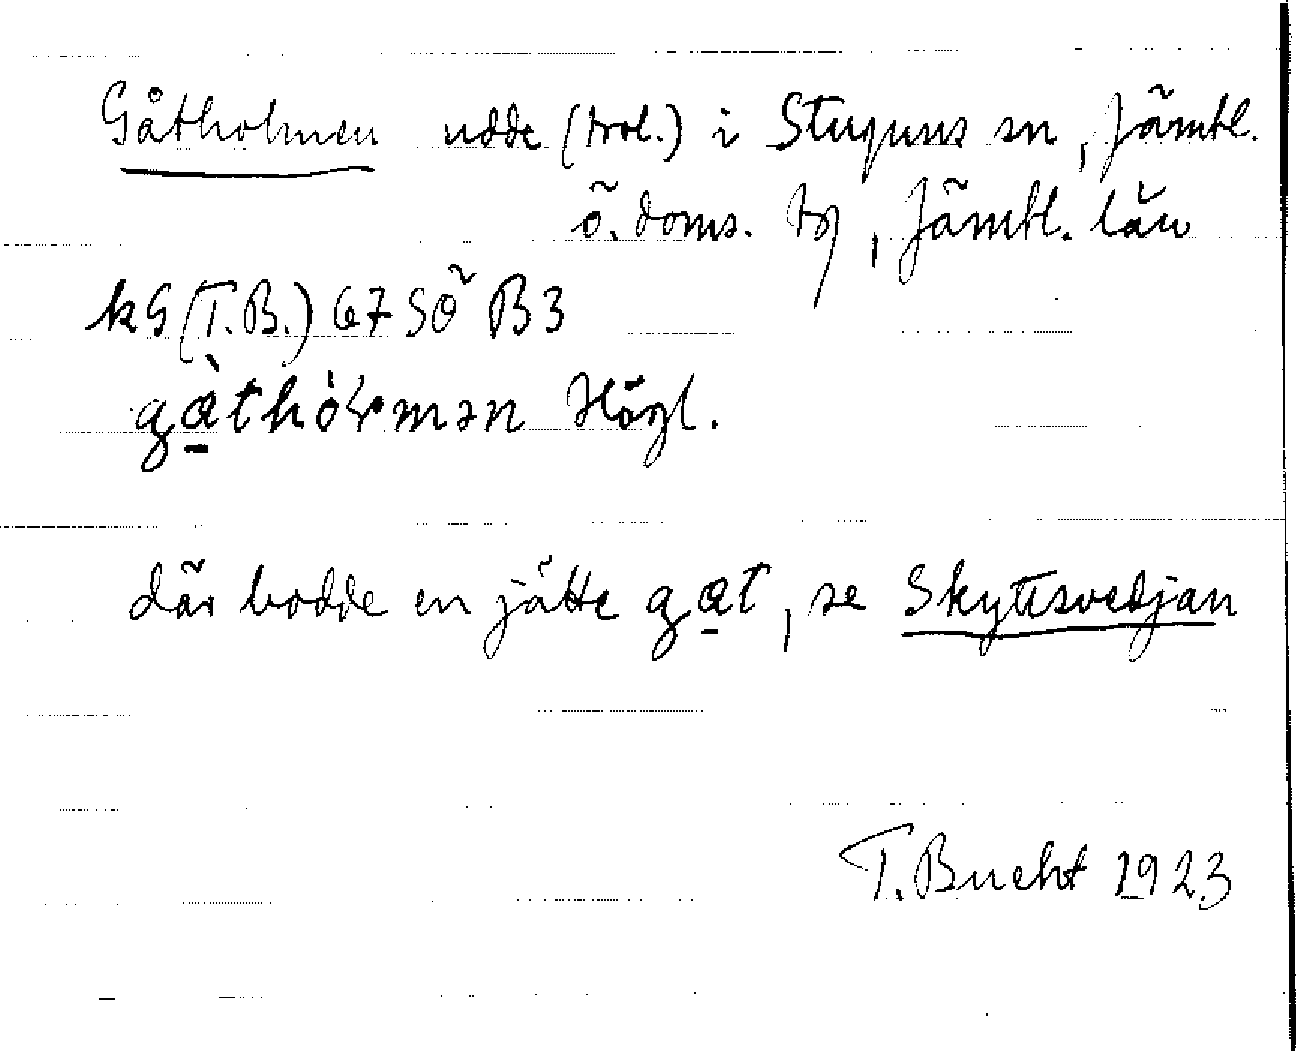 Gåtholmen udde (trol.) i Stuguns sn, Jämtl.
ö. doms. tg, Jämtl. län
kG (T.B.) 67 SÖ B3
gà̱thòrmən Högl.
där bodde en jätte ga̱t, se Skyttsvedjan
T. Bucht 1923